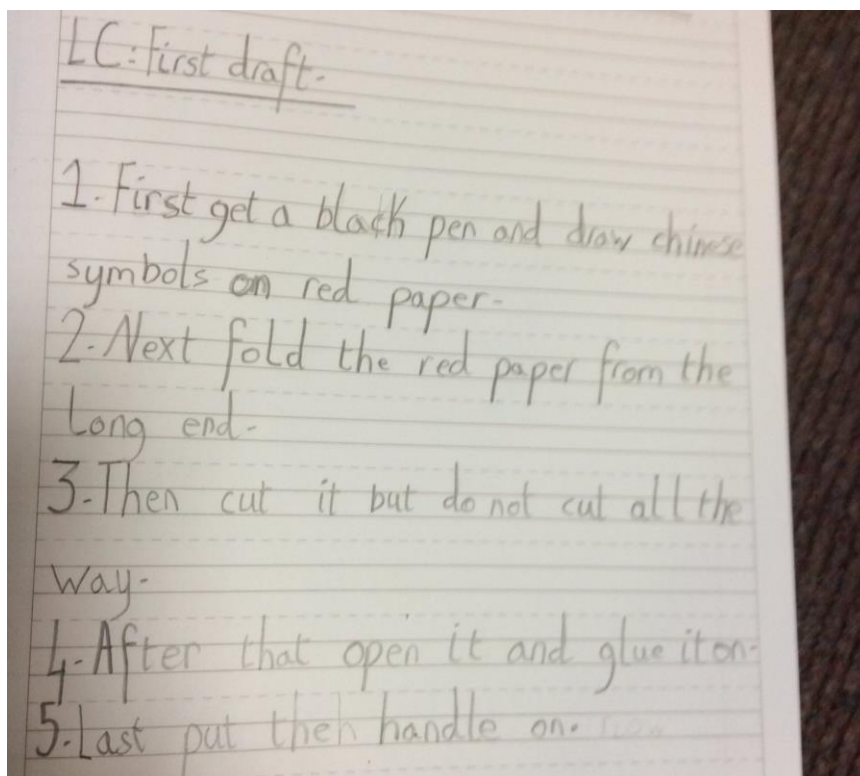 LC: First draft.
1. First get a black pen and draw chinese
symbols on red paper.
2. Next fold the red paper from the
long end.
3. Then cut it but do not cut all the
way.
4. After that open it and glue it on.
5. Last put theh handle on.